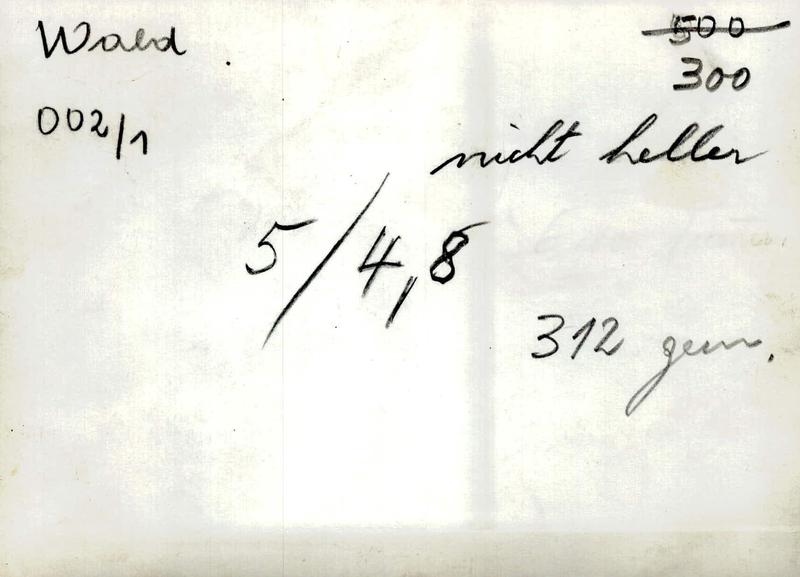 Wald
500
300
002/1
nicht heller
5/4,8
312